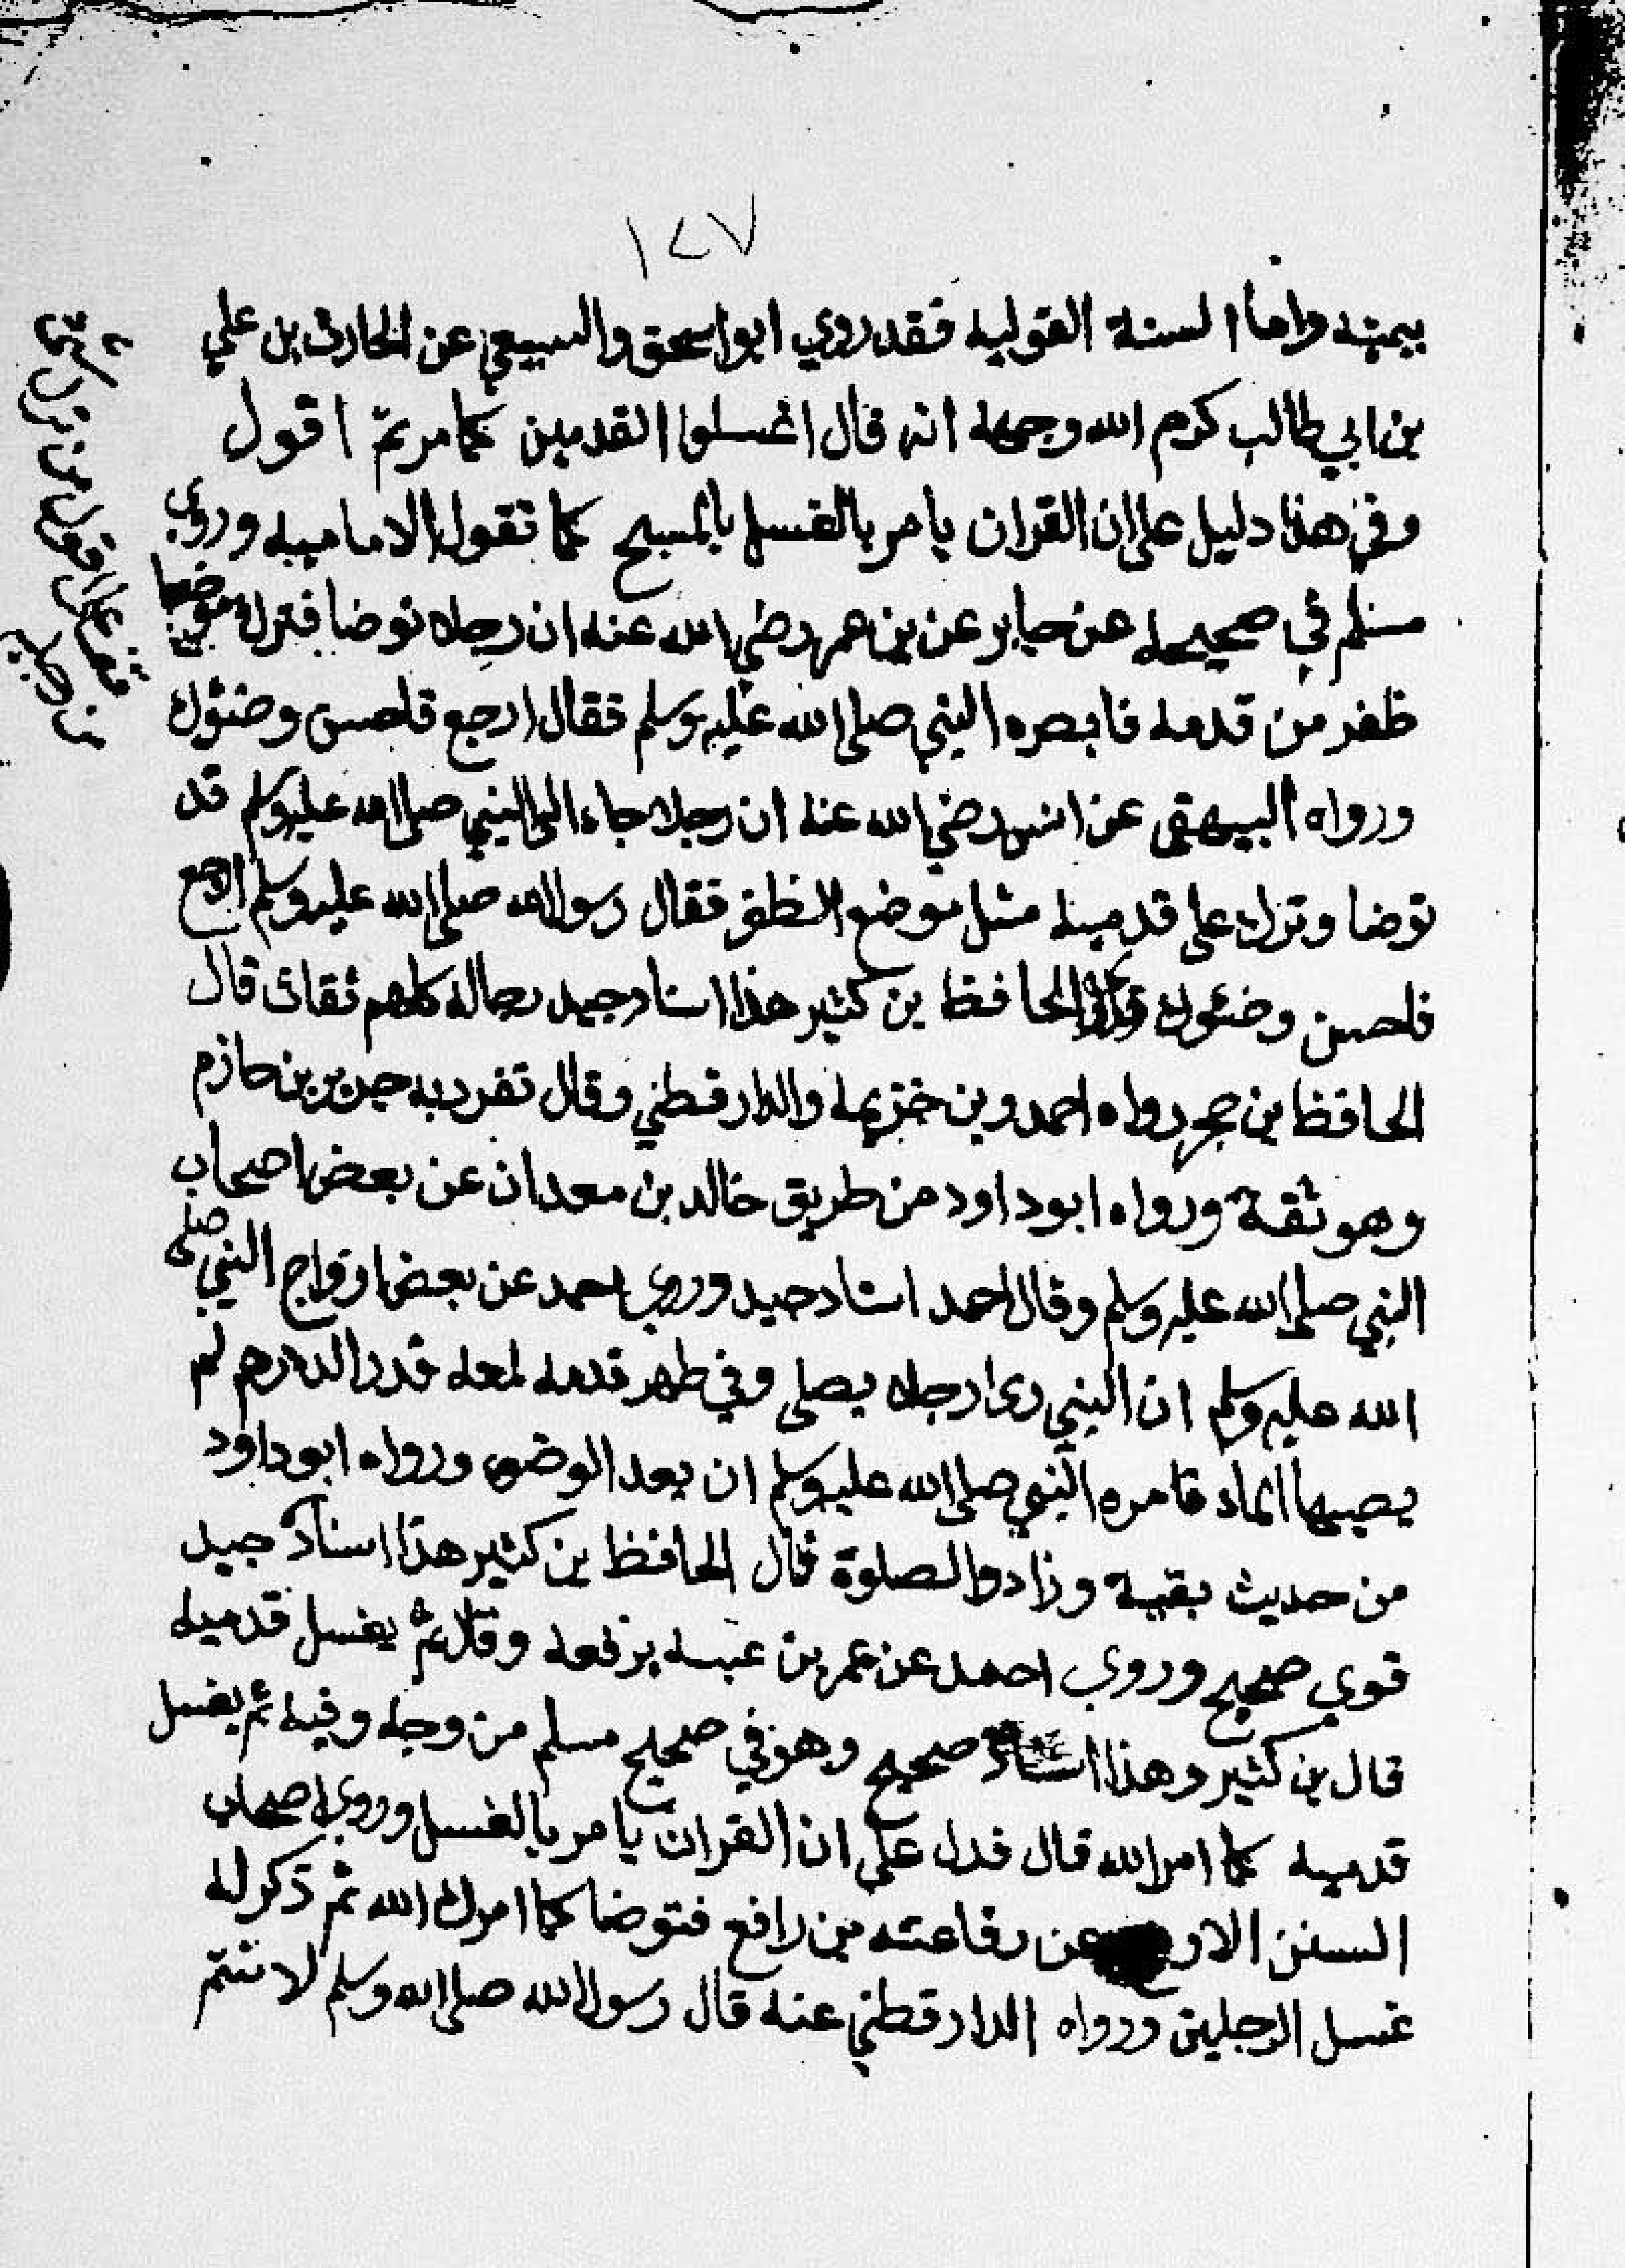 ١٤٧
بيمينه واما السنة القوليه فقد روي ابو اسحق والسبيعي عن الحارث بن علي
بن ابي طالب كرم الله وجهه انه قال اغسلوا القدمين كما مر ثم اقول
وفي هذا دليل على ان القران يامر بالغسل بالمسح كما تقول الاماميه وروي
مسلم في صحيحه عن جابر عن بن عمر رضي الله عنه ان رجلا توضا فترك موضعا
ظفر من قدمه فابصره النبي صلى الله عليه وسلم فقال ارجع فاحسن وضئوك
ورواه البيهقى عن انس رضي الله عنه ان رجلا جاء الى النبي صلى الله عليه وسلم قد
توضا وترك على قدميه مثل موضع الظفر فقال رسول الله صلى الله عليه وسلم ارجع
فاحسن وضئوك الحافظ بن كثير هذا اسناد جيد رجاله كلهم ثقات قال
الحافظ بن حجر رواه احمد وبن خزيمه والدارقطني وقال تفرد به جرير بن حازم
وهو ثقة ورواه ابو داود من طريق خالد بن معدان عن بعض اصحاب
النبي صلى الله عليه وسلم وقال احمد اسناد جيد وروي احمد عن بعض ازواج النبي صلى
الله عليه وسلم ان النبي رءا رجلا يصلى وفي ظهر قدمه لمعه قدر الدرهم لم
يصبها الماء فامره النبي صلى الله عليه وسلم ان يعد الوضوء ورواه ابو داود
من حديث بقية وزاد والصلوة قال الحافظ بن كثير هذا اسناد جيد
قوي صحيح وروي احمد عن عمر بن عبسه يرفعه وقال ثم يغسل قدميه
قال بن كثير وهذا اسناد صحيح وهو في صحيح مسلم من وجه وفيه ثم يغسل
قدميه كما امر الله قال فدل على ان القران يامر بالغسل وروي اصحاب
السنن الاربع عن رفاعته بن رافع فتوضا كما امرك الله ثم ذكر له
غسل الرجلين ورواه الدارقطني عنه قال رسول الله صلى الله وسلم لا تتم